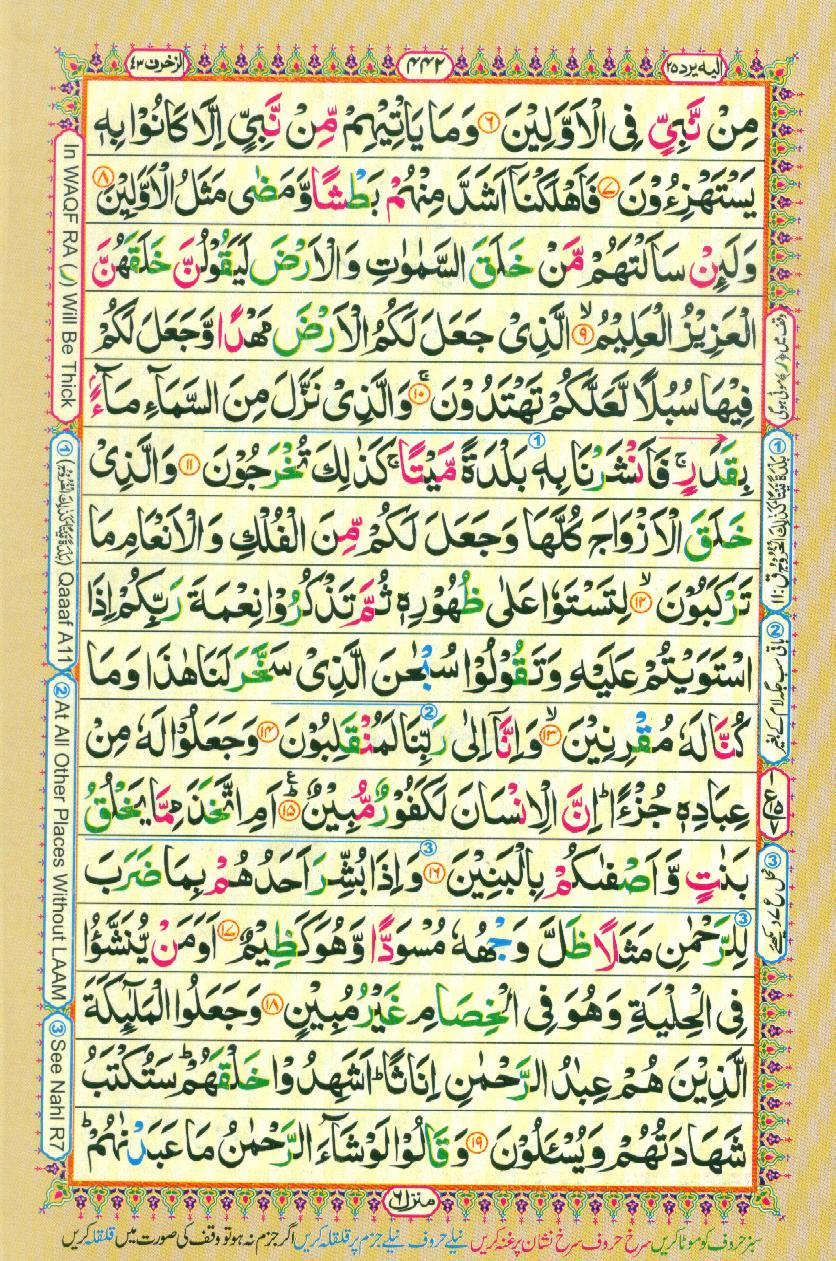 الزخرف ٤٣
٤٤٢
اليه يرد ٢٥
مِنْ نَّبِيٍّ فِى الْاَوَّلِيْنَ ۝٦ وَمَا يَاْتِيْهِمْ مِّنْ نَّبِيٍّ اِلَّا كَانُوْا بِهٖ
يَسْتَهْزِءُوْنَ ۝٧ فَاَهْلَكْنَآ اَشَدَّ مِنْهُمْ بَطْشًا وَّمَضٰى مَثَلُ الْاَوَّلِيْنَ ۝٨
وَلَئِنْ سَاَلْتَهُمْ مَّنْ خَلَقَ السَّمٰوٰتِ وَالْاَرْضَ لَيَقُوْلُنَّ خَلَقَهُنَّ
الْعَزِيْزُ الْعَلِيْمُ ۝٩ۙ الَّذِىْ جَعَلَ لَكُمُ الْاَرْضَ مَهْدًا وَّجَعَلَ لَكُمْ
فِيْهَا سُبُلًا لَّعَلَّكُمْ تَهْتَدُوْنَ ۝١٠ۚ وَالَّذِىْ نَزَّلَ مِنَ السَّمَآءِ مَآءًۢ
بِقَدَرٍۚ فَاَنْشَرْنَا بِهٖ بَلْدَةً مَّيْتًاۚ كَذٰلِكَ تُخْرَجُوْنَ ۝١١ وَالَّذِىْ
خَلَقَ الْاَزْوَاجَ كُلَّهَا وَجَعَلَ لَكُمْ مِّنَ الْفُلْكِ وَالْاَنْعَامِ مَا
تَرْكَبُوْنَ ۝١٢ۙ لِتَسْتَوٗا عَلٰى ظُهُوْرِهٖ ثُمَّ تَذْكُرُوْا نِعْمَةَ رَبِّكُمْ اِذَا
اسْتَوَيْتُمْ عَلَيْهِ وَتَقُوْلُوْا سُبْحٰنَ الَّذِىْ سَخَّرَ لَنَا هٰذَا وَمَا
كُنَّا لَهٗ مُقْرِنِيْنَ ۝١٣ۙ وَاِنَّآ اِلٰى رَبِّنَا لَمُنْقَلِبُوْنَ ۝١٤ وَجَعَلُوْا لَهٗ مِنْ
عِبَادِهٖ جُزْءًاؕ اِنَّ الْاِنْسَانَ لَكَفُوْرٌ مُّبِيْنٌ ۝١٥ؕ اَمِ اتَّخَذَ مِمَّا يَخْلُقُ
بَنٰتٍ وَّاَصْفٰىكُمْ بِالْبَنِيْنَ ۝١٦ وَاِذَا بُشِّرَ اَحَدُهُمْ بِمَا ضَرَبَ
لِلرَّحْمٰنِ مَثَلًا ظَلَّ وَجْهُهٗ مُسْوَدًّا وَّهُوَ كَظِيْمٌ ۝١٧ اَوَمَنْ يُّنَشَّؤُا
فِى الْحِلْيَةِ وَهُوَ فِى الْخِصَامِ غَيْرُ مُبِيْنٍ ۝١٨ وَجَعَلُوا الْمَلٰٓئِكَةَ
الَّذِيْنَ هُمْ عِبٰدُ الرَّحْمٰنِ اِنَاثًاؕ اَشَهِدُوْا خَلْقَهُمْؕ سَتُكْتَبُ
شَهَادَتُهُمْ وَيُسْـَٔلُوْنَ ۝١٩ وَقَالُوْا لَوْ شَآءَ الرَّحْمٰنُ مَا عَبَدْنٰهُمْؕ
منزل ٦
سبز حروف کو موٹا کریں سرخ حروف سرخ نشان پر غنہ کریں نیلے حروف نیلے جزم پر قلقلہ کریں اگر جزم نہ ہو تو وقف کی صورت میں قلقلہ کریں
In WAQF RA (ر) Will Be Thick
① Qaaaf A11
② At All Other Places Without LAAM
③ See Nahl R7